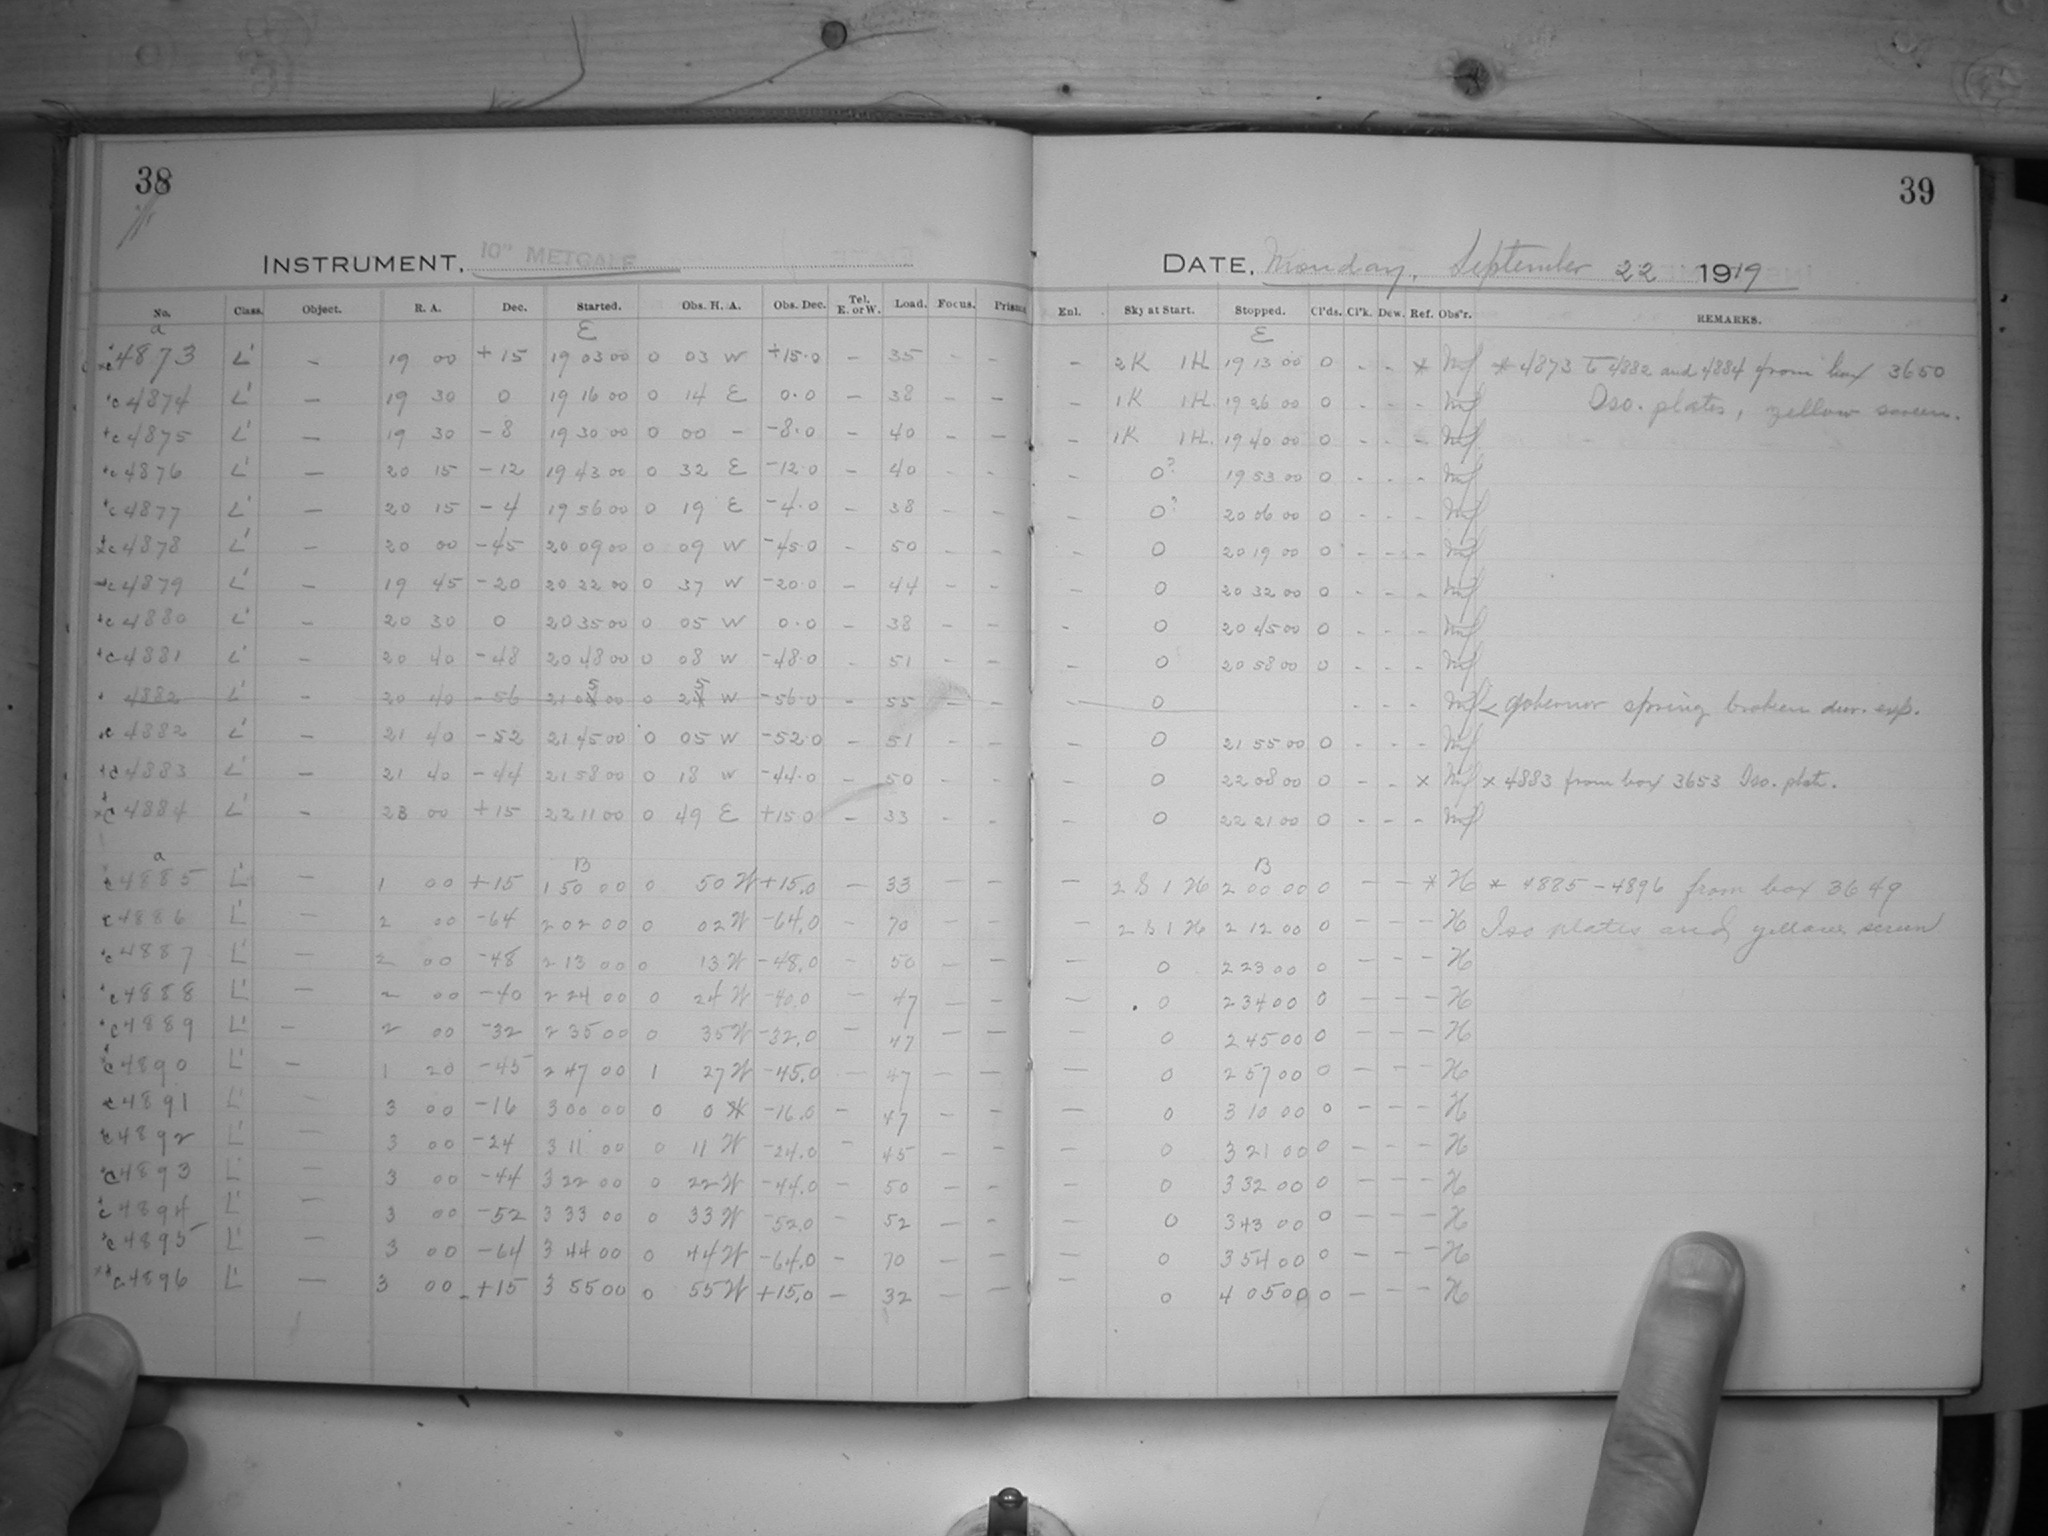 38
39
INSTRUMENT, 10" METCALF
DATE, Monday, September 22 1919
No. Class. Object. R. A. Dec. Started. Obs. H. A. Obs. Dec. Tel. E. or W. Load. Focus. Prisms Enl. Sky at Start. Stopped. Cl'ds. Cl'k. Dew. Ref. Obs'r. REMARKS.
a E E
c4873 L' – 19 00 +15 19 03 00 0 03 W +15.0 – 35 – – – 2K 1H 19 13 00 0 - - * * 4873 to 4882 and 4884 from box 3650
c4874 L' – 19 30 0 19 16 00 0 14 E 0.0 – 38 – – – 1K 1H. 19 26 00 0 - - - Iso. plates, yellow screen.
c4875 L' – 19 30 –8 19 30 00 0 00 – –8.0 – 40 – – – 1K 1H. 19 40 00 0 - - -
c4876 L' – 20 15 –12 19 43 00 0 32 E –12.0 – 40 – – – 0? 19 53 00 0 - - -
c4877 L' – 20 15 –4 19 56 00 0 19 E –4.0 – 38 – – – 0? 20 06 00 0 - - -
c4878 L' – 20 00 –45 20 09 00 0 09 W –45.0 – 50 – – – 0 20 19 00 0 - - -
c4879 L' – 19 45 –20 20 22 00 0 37 W –20.0 – 44 – – – 0 20 32 00 0 - - -
c4880 L' – 20 30 0 20 35 00 0 05 W 0.0 – 38 – – – 0 20 45 00 0 - - -
c4881 L' – 20 40 –48 20 48 00 0 08 W –48.0 – 51 – – – 0 20 58 00 0 - - -
4882 L' – 20 40 –56 21 05 00 0 25 W –56.0 – 55 – – – 0 - - - < gobernor spring broken dur. exp.
c4882 L' – 21 40 –52 21 45 00 0 05 W –52.0 – 51 – – – 0 21 55 00 0 - - -
c4883 L' – 21 40 –44 21 58 00 0 18 W –44.0 – 50 – – – 0 22 08 00 0 - - x x 4883 from box 3653 Iso. plate.
c4884 L' – 23 00 +15 22 11 00 0 49 E +15.0 – 33 – – – 0 22 21 00 0 - - -
a B B
c4885 L' – 1 00 +15 1 50 00 0 50 W +15.0 – 33 – 2 S 1 H 2 00 00 0 – – * H * 4885 – 4896 from box 3649
c4886 L' – 2 00 –64 2 02 00 0 02 W –64.0 – 70 – – – 2 S 1 H 2 12 00 0 – – – H Iso plates and yellow screen
c4887 L' – 2 00 –48 2 13 00 0 13 W –48.0 – 50 – – – 0 2 23 00 0 – – – H
c4888 L' – 2 00 –40 2 24 00 0 24 W –40.0 – 47 – – – 0 2 34 00 0 – – – H
c4889 L' – 2 00 –32 2 35 00 0 35 W –32.0 – 47 – – – 0 2 45 00 0 – – – H
c4890 L' – 1 20 –45 2 47 00 1 27 W –45.0 – 47 – – – 0 2 57 00 0 – – – H
c4891 L' – 3 00 –16 3 00 00 0 0 W –16.0 – 47 – – – 0 3 10 00 0 – – – H
c4892 L' – 3 00 –24 3 11 00 0 11 W –24.0 – 45 – – – 0 3 21 00 0 – – – H
c4893 L' – 3 00 –44 3 22 00 0 22 W –44.0 – 50 – – – 0 3 32 00 0 – – – H
c4894 L' – 3 00 –52 3 33 00 0 33 W –52.0 – 52 – – – 0 3 43 00 0 – – – H
c4895 L' – 3 00 –64 3 44 00 0 44 W –64.0 – 70 – – – 0 3 54 00 0 – – – H
c4896 L' – 3 00 +15 3 55 00 0 55 W +15.0 – 32 – – – 0 4 05 00 0 – – – H